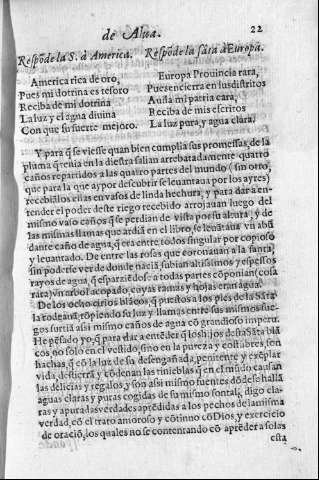 de Alua.
22
Respõde la S. à America. Respõde la sãta à Europa.
America rica de oro,
Pues mi dotrina es tesoro
Reciba de mi dotrina
La luz y el agua diuina
Con que su suerte mejoro.
Europa Prouincia rara,
Pues encierra en lus distritos
Auila mi patria cara,
Reciba de mis escritos
La luz pura, y agua clara.
Y para q̃ se viesse quan bien cumplia sus promessas, de la
pluma q̃ tenia en la diestra salian arrebatadamente quatro
caños repartidos a las quatro partes del mundo (sin otro,
que para la que ay por descubrir se leuantaua por los ayres)
recebiãlos en vasos de linda hechura, y para dar a en-
tender el poder deste riego recebido arrojauan luego del
mismo vaso caños q̃ se perdian de vista por su altura, y de
las mismas llamas que ardiã en el libro, se leuãtaua vn abũ
dante caño de agua, q̃ era entre todos singular por copioso
y leuantado. De entre las rosas que coronauan a la santa,
sin poderse ver de donde nacia, subian altisimos y espessos
rayos de agua, q̃ esparziẽdose a todas partes cõponian (cosa
rara) vn arbol acopado, cuyas ramas y hojas eran agua.
De los ocho cirios blãcos, q̃ puestos a los pies de la Sãta
la rodeauã, rõpiendo su luz y llamas entre sus mismos fue-
gos surtia assi mismo caños de agua cõ grandioso impetu.
He pẽsado yo, q̃ para dar a entẽder q̃ los hijos desta Sãta blã
cos, no solo en el vestido, sino en la pureza y costũbres, son
hachas, q̃ cõ la luz de su desengañada, penitente y exẽplar
vida, destierrã y cõdenan las tinieblas q̃ en el mũdo causan
las delicias y regalos, y son assi mismo fuentes dõde se hallã
aguas claras y puras cogidas de su mismo sontal, digo cla-
ras y apuradas verdades aprẽdidas a los pechos de la misma
verdad, cõ el trato amoroso y cõtinno cõ Dios, y exercicio
de oraciõ, los quales no se contentando cõ aprẽder a solas
esta